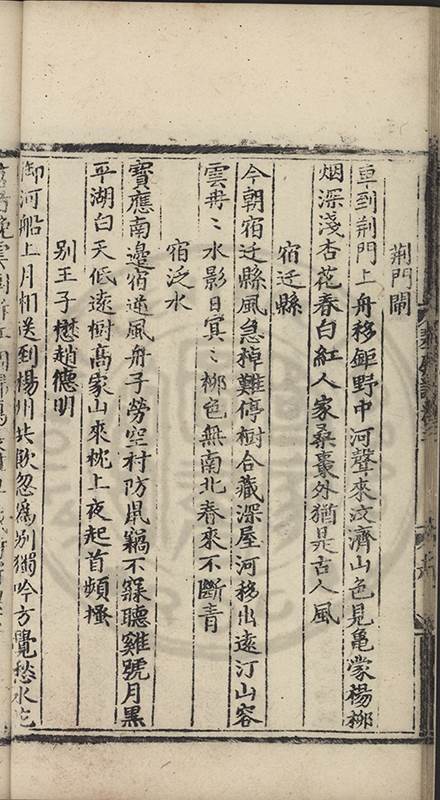 荆門閘
車到荆門上舟移鉅野中河聲來汶濟山色見龜蒙楊柳
烟深淺杏花春白紅人家桑棗外猶是古人風
宿迁縣
今朝宿迁縣風急棹難停樹合藏深屋河移出遠汀山容
雲冉〻水影日冥〻柳色無南北春來不断青
宿泛水
寶應南邊宿逆風舟子勞空村防鼠竊不寐聽雞號月黒
平湖白天低遠樹高家山來枕上夜起首頻搔
别王子懋趙德明
御河船上月相送到楊州共飲忽為别獨吟方覺愁水